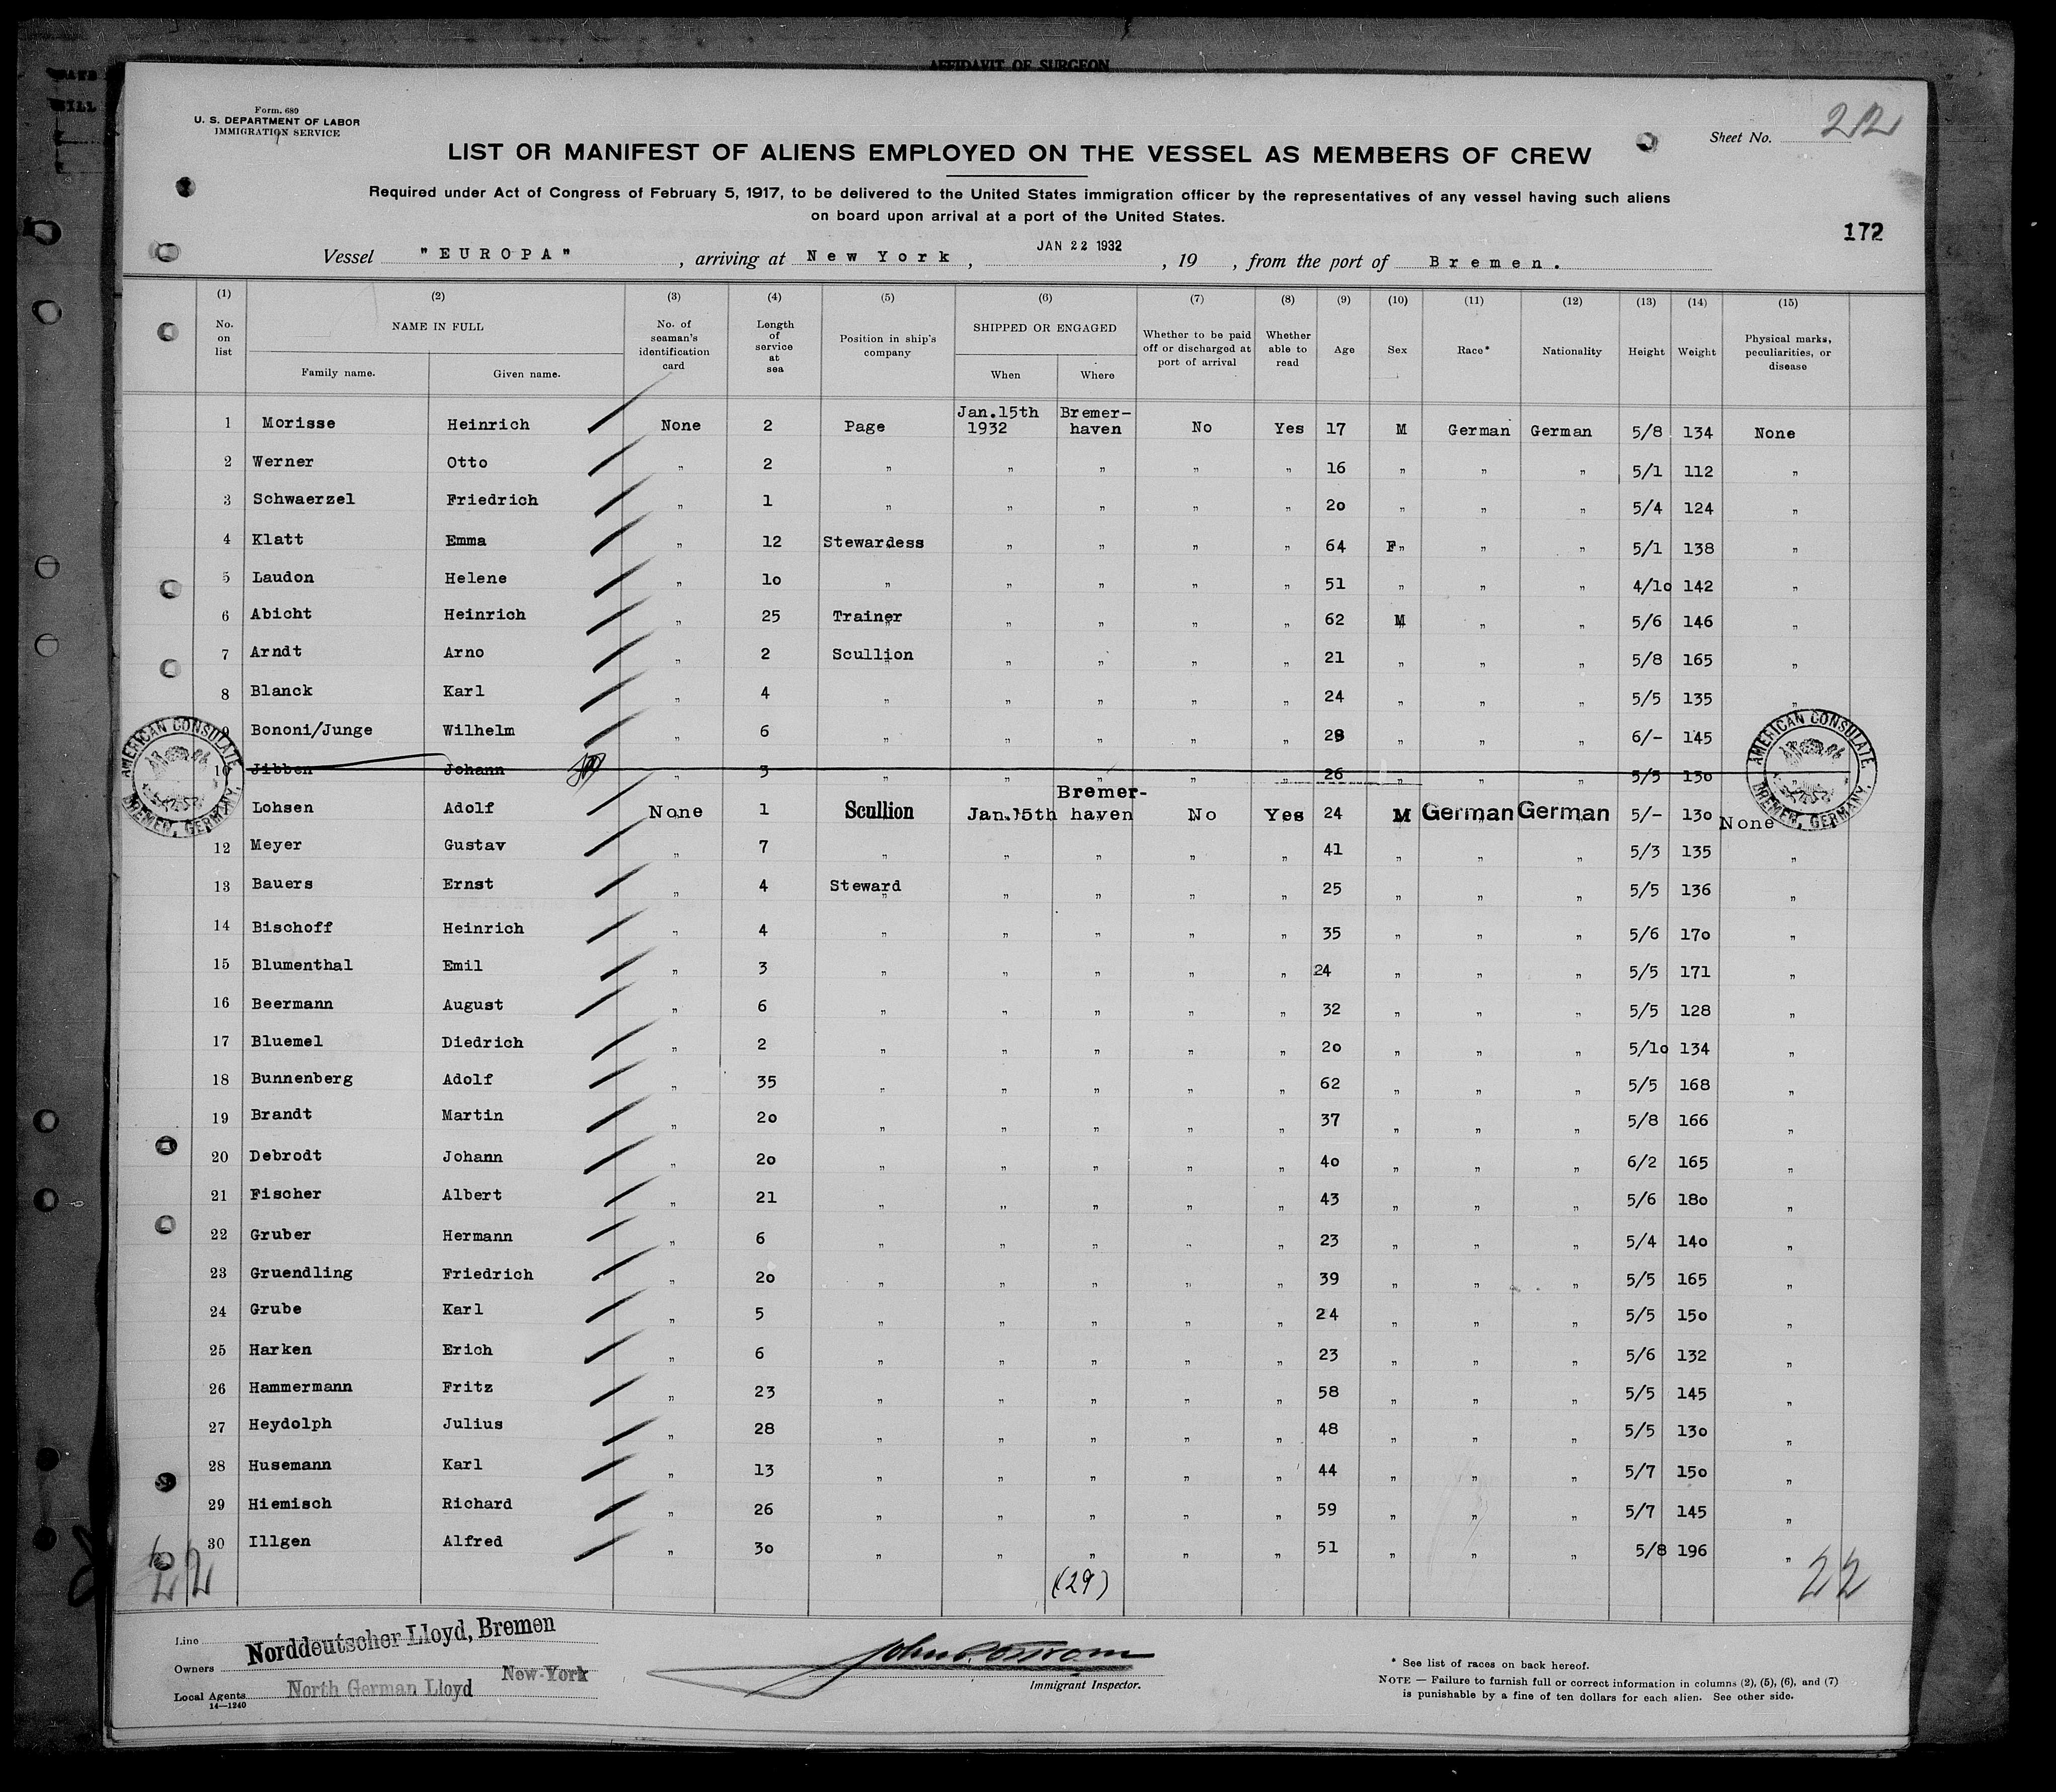 AFFIDAVIT OF SURGEON
Form 689
U. S. DEPARTMENT OF LABOR
IMMIGRATION SERVICE
Sheet No. 22
LIST OR MANIFEST OF ALIENS EMPLOYED ON THE VESSEL AS MEMBERS OF CREW
Required under Act of Congress of February 5, 1917, to be delivered to the United States immigration officer by the representatives of any vessel having such aliens
on board upon arrival at a port of the United States.
172
Vessel "EUROPA", arriving at New York, JAN 22 1932, 19 , from the port of Bremen.
(1) (2) (3) (4) (5) (6) (7) (8) (9) (10) (11) (12) (13) (14) (15)
No. on list NAME IN FULL Family name. Given name. No. of seaman's identification card Length of service at sea Position in ship's company SHIPPED OR ENGAGED When Where Whether to be paid off or discharged at port of arrival Whether able to read Age Sex Race* Nationality Height Weight Physical marks, peculiarities, or disease
1 Morisse Heinrich None 2 Page Jan.15th 1932 Bremer-haven No Yes 17 M German German 5/8 134 None
2 Werner Otto " 2 " " " " " 16 " " " 5/1 112 "
3 Schwaerzel Friedrich " 1 " " " " " 20 " " " 5/4 124 "
4 Klatt Emma " 12 Stewardess " " " " 64 F" " " 5/1 138 "
5 Laudon Helene " 10 " " " " " 51 " " " 4/10 142 "
6 Abicht Heinrich " 25 Trainer " " " " 62 M " " 5/6 146 "
7 Arndt Arno " 2 Scullion " " " " 21 " " " 5/8 165 "
8 Blanck Karl " 4 " " " " " 24 " " " 5/5 135 "
9 Bononi/Junge Wilhelm " 6 " " " " " 29 " " " 6/- 145
10 Jibben Johann " 3 " " " " " 26 " " " 5/5 130 "
Lohsen Adolf None 1 Scullion Jan.15th Bremer-haven No Yes 24 M German German 5/- 130 None
12 Meyer Gustav " 7 " " " " " 41 " " " 5/3 135 "
13 Bauers Ernst " 4 Steward " " " " 25 " " " 5/5 136 "
14 Bischoff Heinrich " 4 " " " " " 35 " " " 5/6 170 "
15 Blumenthal Emil " 3 " " " " " 24 " " " 5/5 171 "
16 Beermann August " 6 " " " " " 32 " " " 5/5 128 "
17 Bluemel Diedrich " 2 " " " " " 20 " " " 5/10 134 "
18 Bunnenberg Adolf " 35 " " " " " 62 " " " 5/5 168 "
19 Brandt Martin " 20 " " " " " 37 " " " 5/8 166 "
20 Debrodt Johann " 20 " " " " " 40 " " " 6/2 165 "
21 Fischer Albert " 21 " " " " " 43 " " " 5/6 180 "
22 Gruber Hermann " 6 " " " " " 23 " " " 5/4 140 "
23 Gruendling Friedrich " 20 " " " " " 39 " " " 5/5 165 "
24 Grube Karl " 5 " " " " " 24 " " " 5/5 150 "
25 Harken Erich " 6 " " " " " 23 " " " 5/6 132 "
26 Hammermann Fritz " 23 " " " " " 58 " " " 5/5 145 "
27 Heydolph Julius " 28 " " " " " 48 " " " 5/5 130 "
28 Husemann Karl " 13 " " " " " 44 " " " 5/7 150 "
29 Hiemisch Richard " 26 " " " " " 59 " " " 5/7 145 "
30 Illgen Alfred " 30 " " " " " 51 " " " 5/8 196 "
AMERICAN CONSULATE BREMEN, GERMANY.
AMERICAN CONSULATE BREMEN, GERMANY.
22 (29) 22
Line Norddeutscher Lloyd, Bremen
Owners
Local Agents North German Lloyd New-York
14—1240
Immigrant Inspector.
* See list of races on back hereof.
NOTE — Failure to furnish full or correct information in columns (2), (5), (6), and (7)
is punishable by a fine of ten dollars for each alien. See other side.